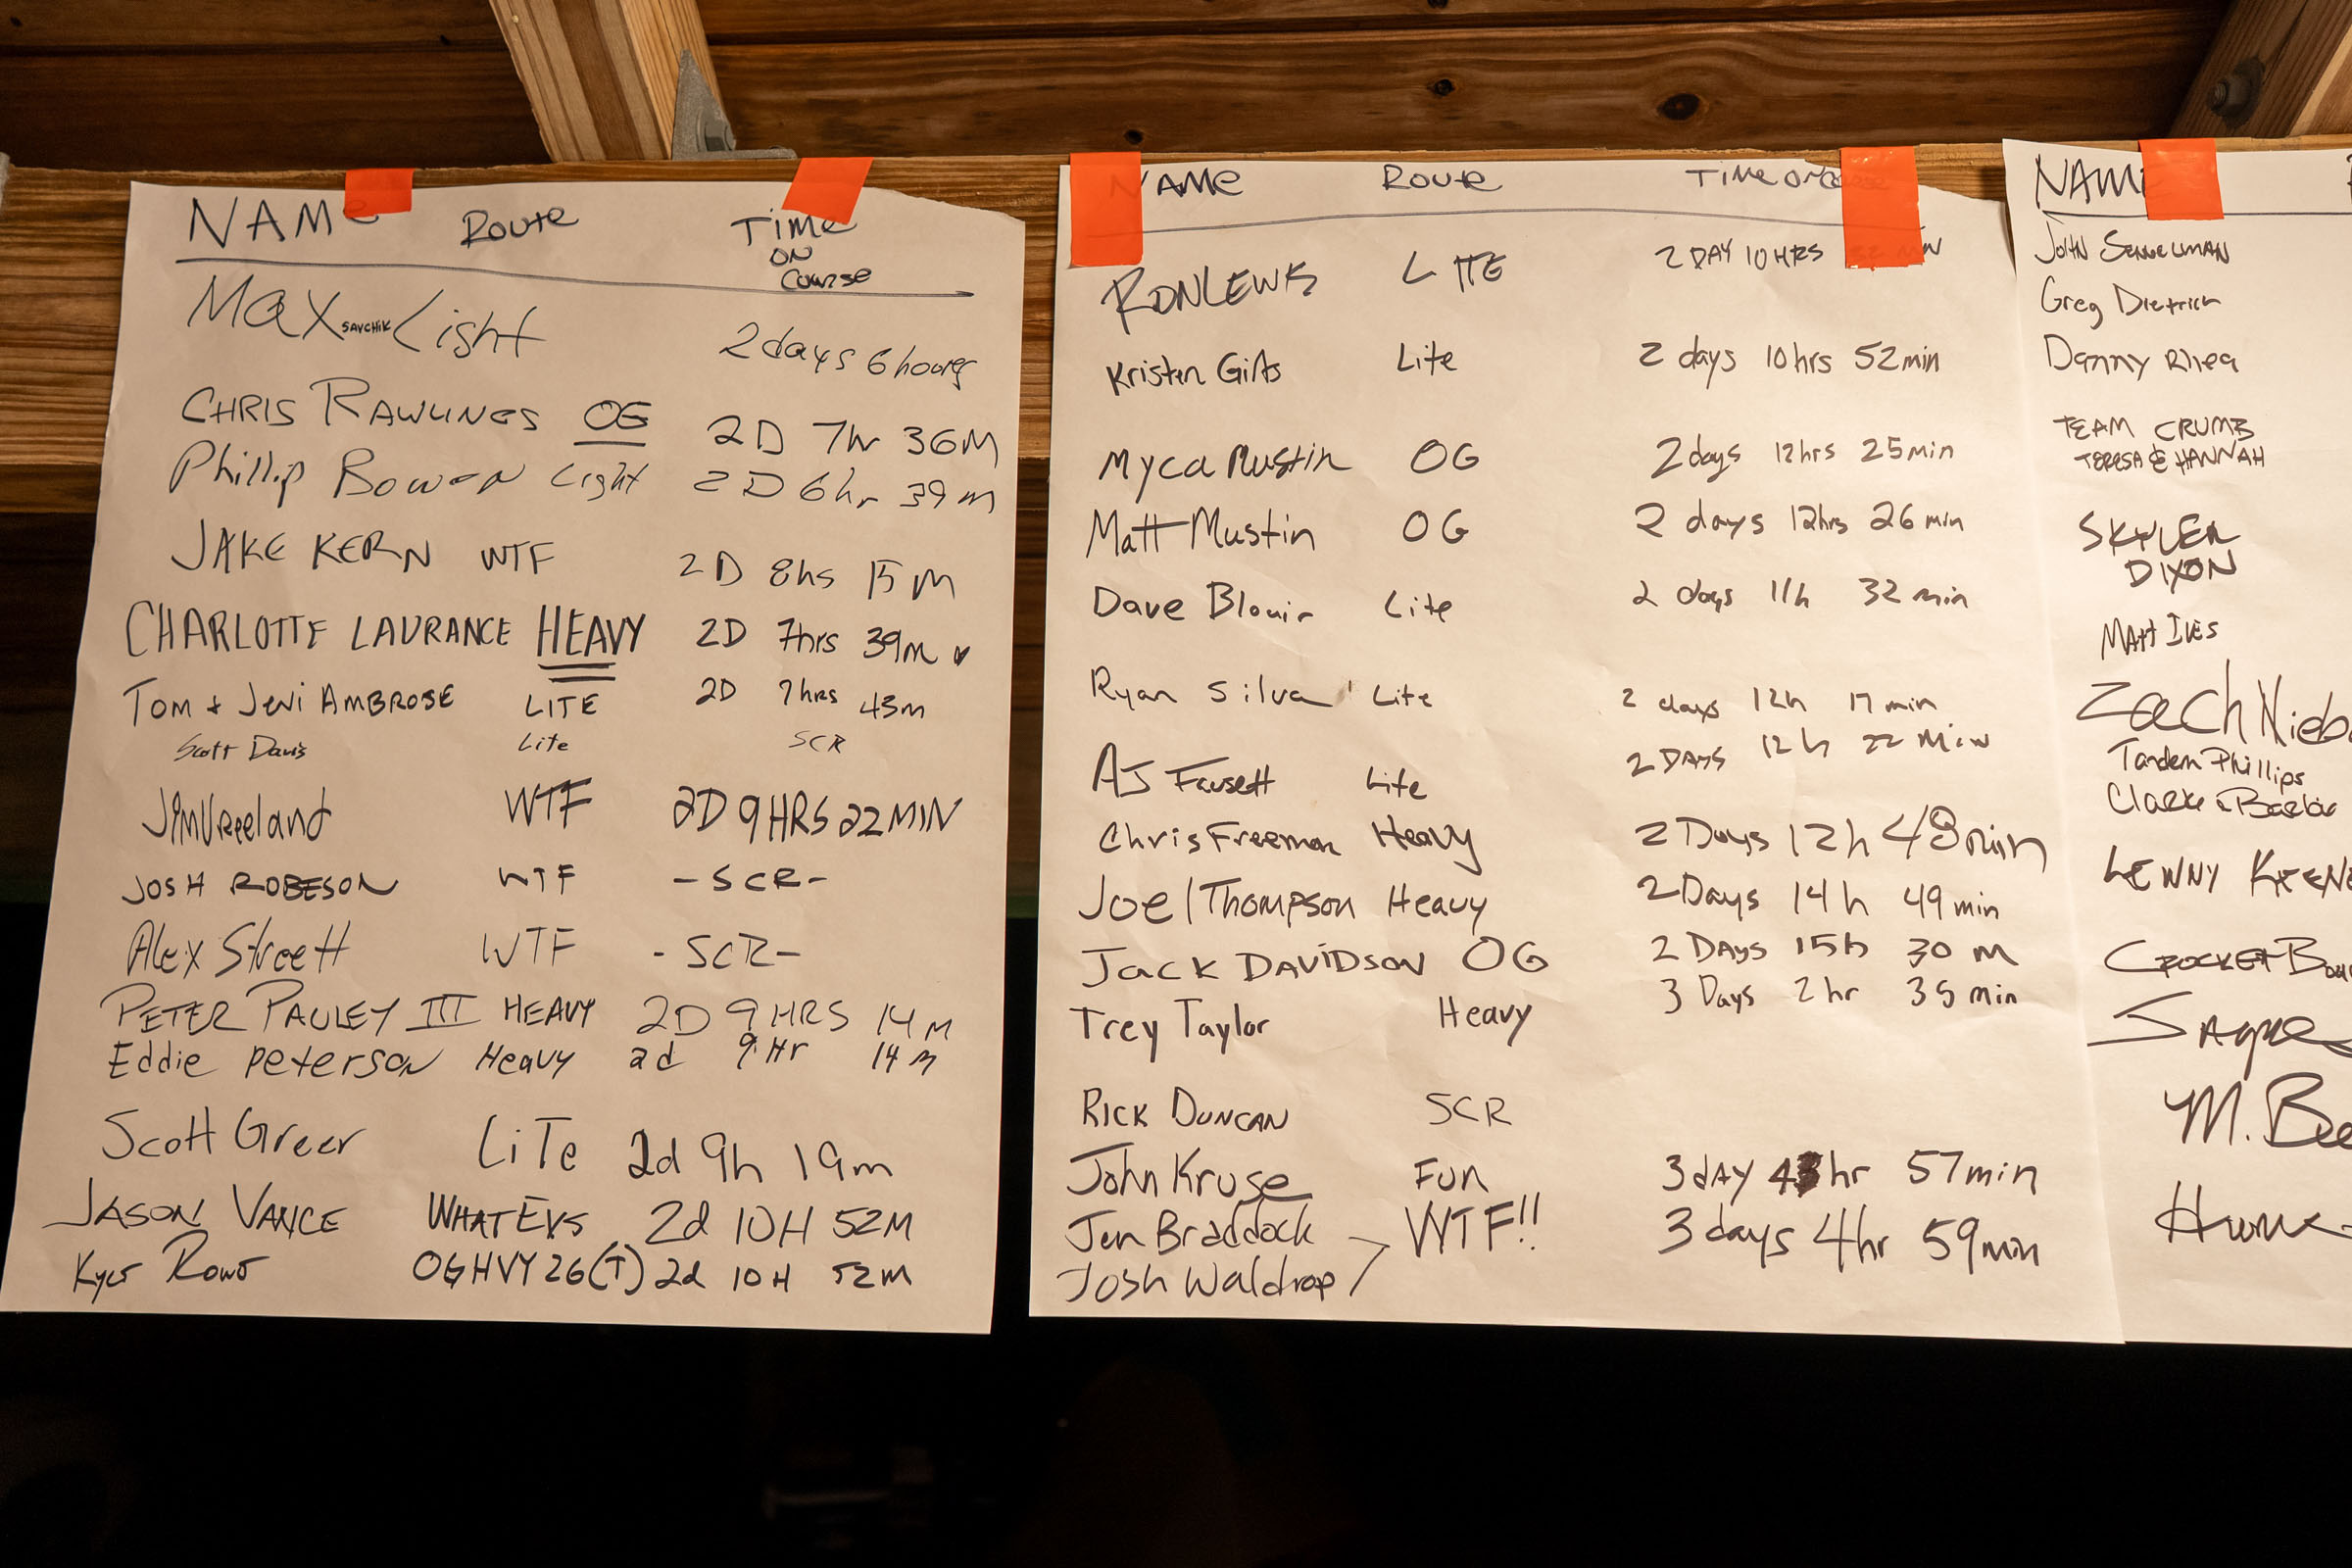 NAME Route Time
ON
Course
Max SAVCHIK Light 2 days 6 hours
CHRIS RAWLINGS OG 2D 7hr 36M
Phillip Bowen Light 2D 6hr 39m
JAKE KERN WTF 2D 8hs 15M
CHARLOTTE LAURANCE HEAVY 2D 7hrs 39m
Tom + Jeni AMBROSE LITE 2D 7hrs 43m
Scott Davis Lite SCR
Jim Vreeland WTF 2D 9HRS 22MIN
JOSH ROBESON WTF -SCR-
Alex Streett WTF -SCR-
PETER PAULEY III HEAVY 2D 9HRS 14M
Eddie peterson Heavy 2d 9Hr 14m
Scott Greer LiTe 2d 9h 19m
JASON VANCE WHATEVS 2d 10H 52M
OGHVY26(T) 2d 10H 52M
NAME Route Time on
RON LEWIS LITE 2 DAY 10HRS
Kristen Lite 2 days 10hrs 52min
Myca Mustin OG 2days 12hrs 25min
Matt Mustin OG 2 days 12hrs 26min
Dave Blouir Lite 2 days 11h 32 min
Ryan Silva Lite 2 days 12h 17 min
AJ Fausett Lite 2 DAYS 12h 22 Min
Chris Freeman Heavy 2 Days 12h 48min
Joel Thompson Heavy 2Days 14h 49min
Jack DAViDSON OG 2 DAys 15h 30 M
Trey Taylor Heavy 3 Days 2hr 35 min
RICK DUNCAN SCR
John Kruse Fun 3 DAY hr 57min
Jen Braddock WTF!! 3days 4hr 59min
Josh Waldrop
NAME
JOHN
Greg Dietrich
Danny Rhea
TEAM CRUMB
TERESA & HANNAH
SKYLER
DIXON
MAtt IVES
Zach
Tandem Phillips
Clarke
LENNY
CROCKET
M.